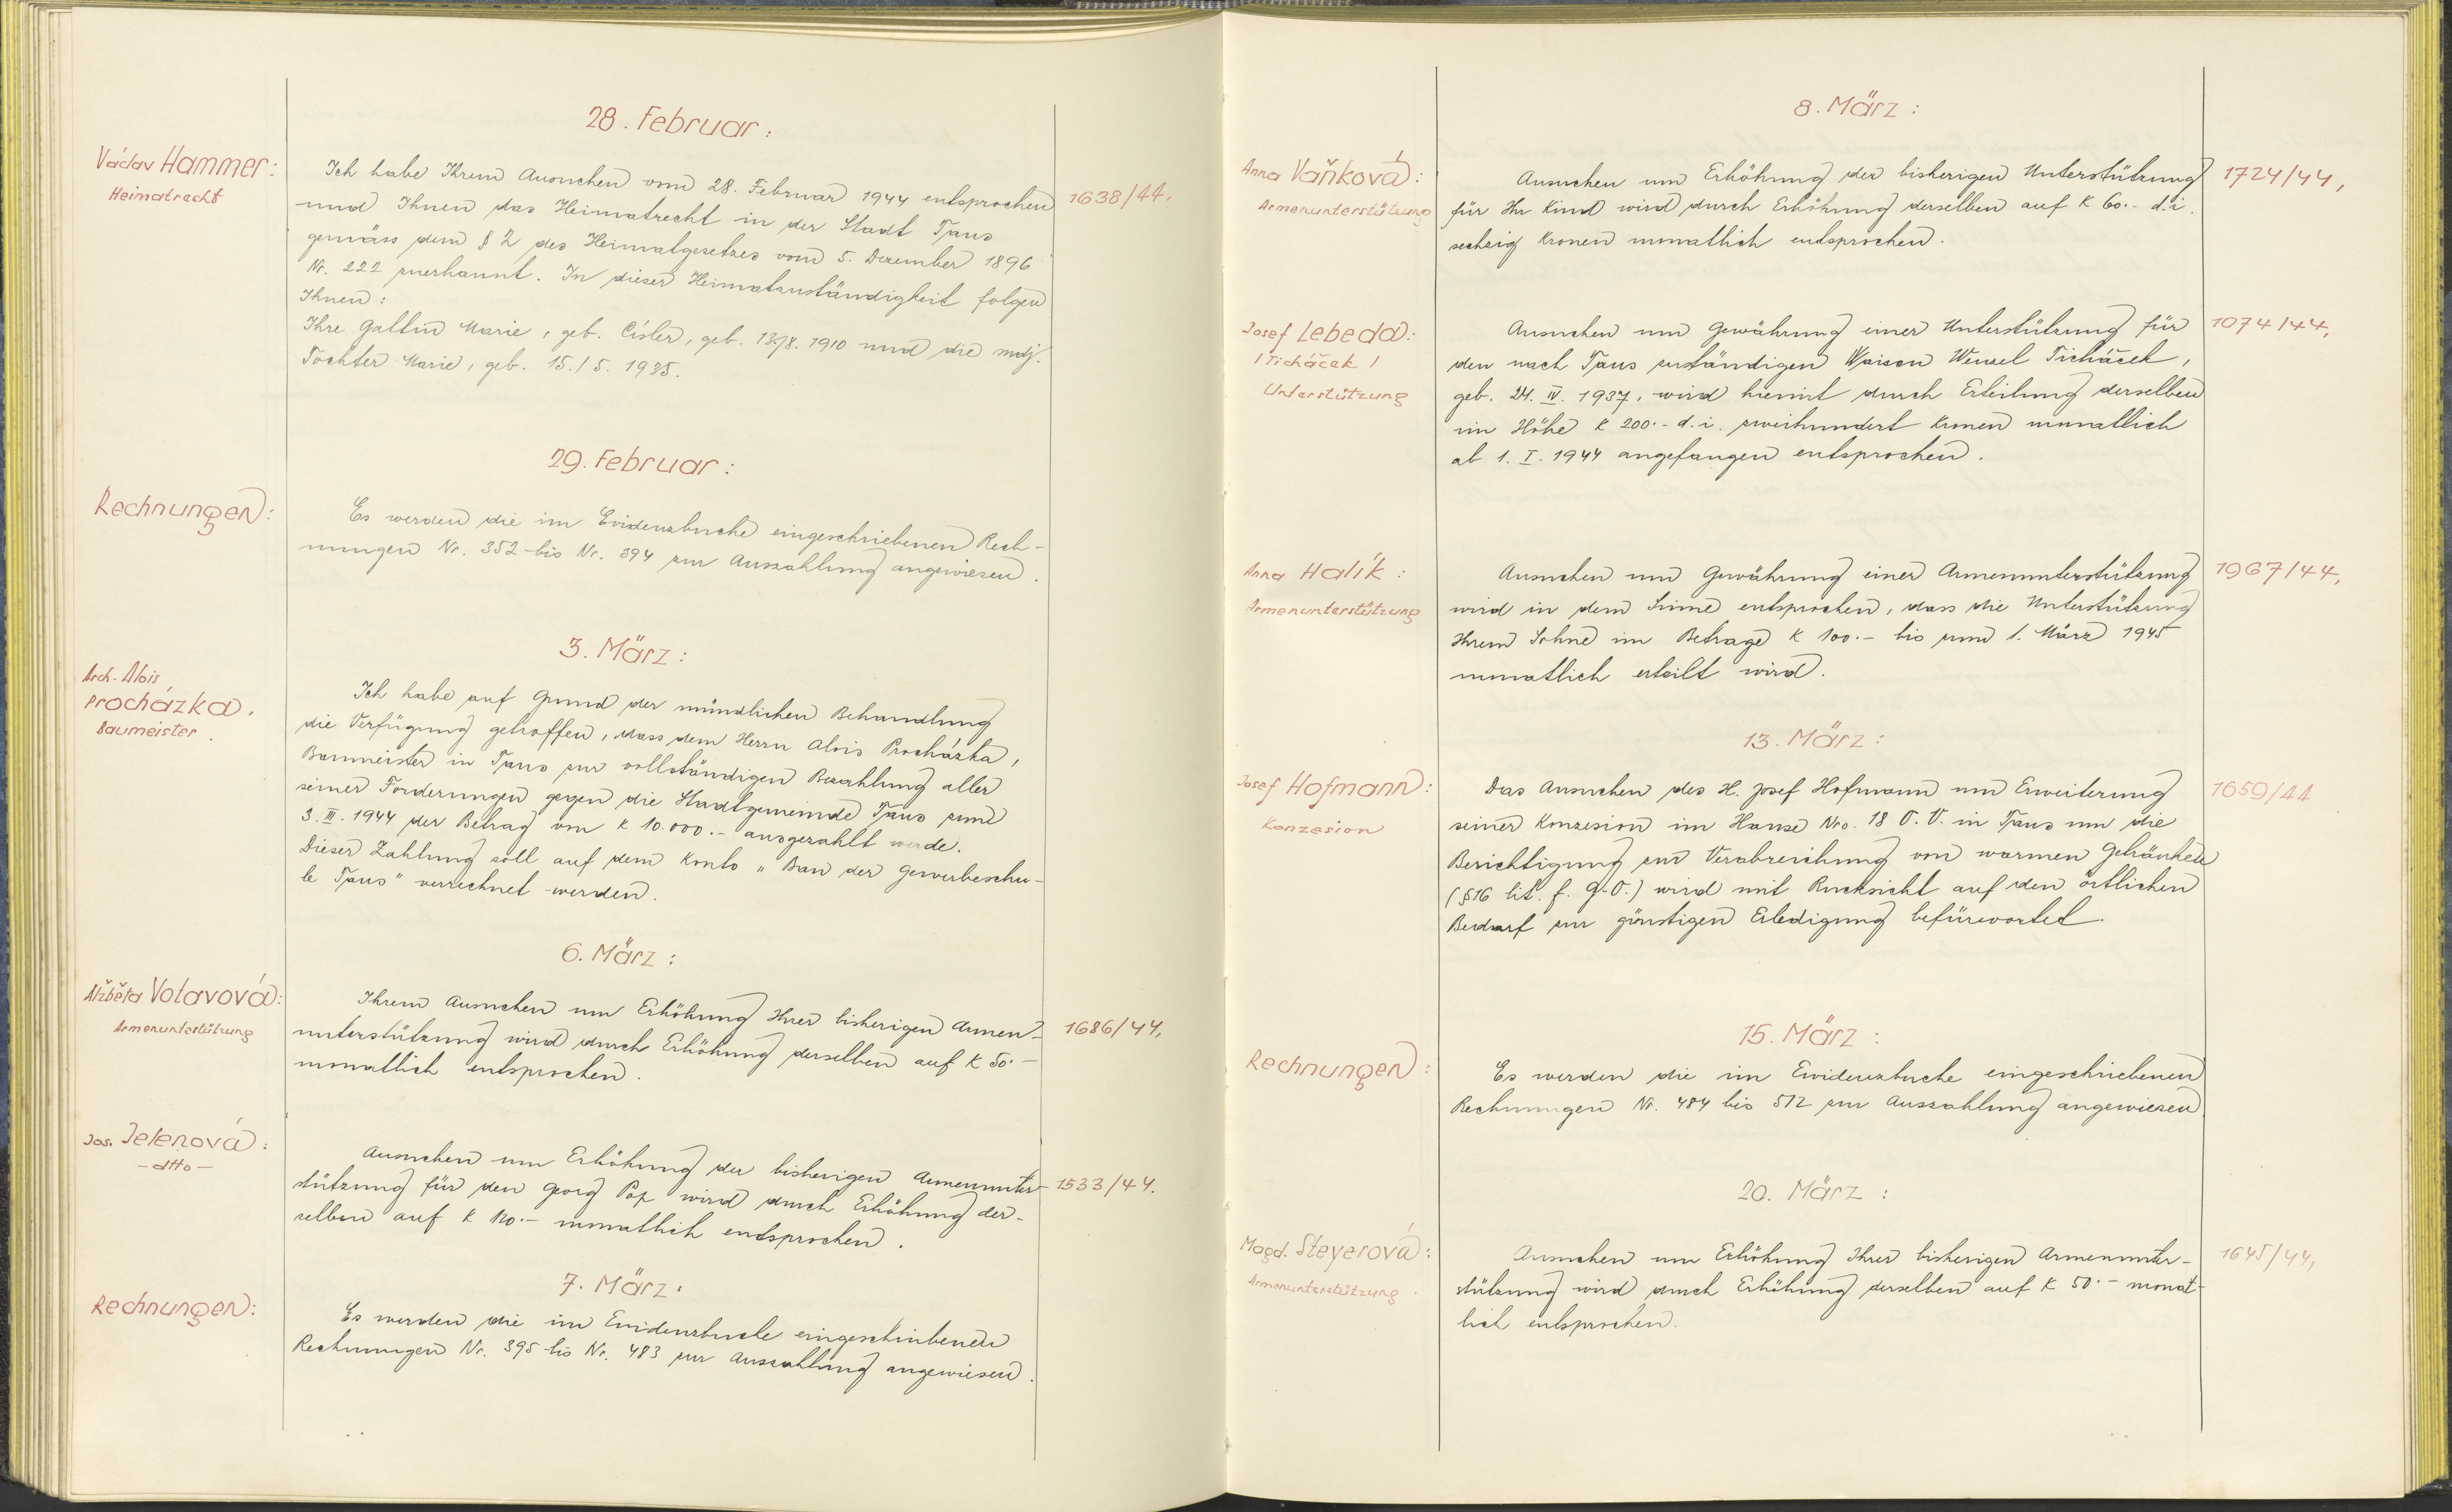 28. Februar:
Václav Hammer:
Heimatrecht
Ich habe Ihrem Ansuchen vom 28. Februar 1944 entsprochen
1638/44.
und Ihnen das Heimatrecht in der Stadt Taus
gemäss dem § 2 des Heimatgesetzes vom 5. Dezember 1896
Nr. 222 zuerkannt. In dieser Heimatzuständigkeit folgen
Ihnen:
Ihre Gattin Marie, geb. Císler, geb. 13./8. 1910 und die mdj.
Tochter Marie, geb. 15./5. 1935.
29. Februar:
Rechnungen:
Es werden die im Evidenzbuche eingeschriebenen Rech-
nungen Nr. 352 bis Nr. 394 zur Auszahlung angewiesen.
3. März:
Arch. Alois
Procházka.
Baumeister.
Ich habe auf Grund der mündlichen Behandlung
die Verfügung getroffen, dass dem Herrn Alois Procházka,
Baumeister in Taus zur vollständigen Bezahlung aller
seiner Forderungen gegen die Stadtgemeinde Taus zum
3. III. 1944 der Betrag von K 10.000.- ausgezahlt werde.
Dieser Zahlung soll auf dem Konto "Bau der Gewerbeschu-
le Taus" verrechnet werden.
6. März:
Alžběta Votavová:
Armenunterstützung
Ihrem Ansuchen um Erhöhung Ihrer bisherigen Armen-
1686/44,
unterstützung wird durch Erhöhung derselben auf K 50.-
monatlich entsprochen.
Jos. Jelenová:
- dtto -
Ansuchen um Erhöhung der bisherigen Armenunter-
1533/44.
stützung für den Georg Pop wird durch Erhöhung der-
selben auf K 120.- monatlich entsprochen.
7. März:
Rechnungen:
Es werden die im Evidenzbuche eingeschriebenen
Rechnungen Nr. 395 bis Nr. 483 zur Auszahlung angewiesen.
8. März:
Anna Vaňková:
Armenunterstützung
Ansuchen um Erhöhung der bisherigen Unterstützung
1724/44,
für Ihr Kind wird durch Erhöhung derselben auf K 60.- d.i.
sechzig Kronen monatlich entsprochen.
Josef Lebeda:
/Ticháček/
Unterstützung
Ansuchen um Gewährung einer Unterstützung für
1074/44,
den nach Taus zuständigen Waisen Wenzel Ticháček,
geb. 24. IV. 1937, wird hiemit durch Erteilung derselben
im Höhe K 200.- d.i. zweihundert Kronen monatlich
ab 1. I. 1944 angefangen entsprochen.
Anna Halík:
Armenunterstützung
Ansuchen um Gewährung einer Armenunterstützung
1967/44,
wird in dem Sinne entsprochen, dass die Unterstützung
Ihrem Sohne im Betrage K 100.- bis zum 1. März 1945
monatlich erteilt wird.
13. März:
Josef Hofmann:
Konzesion
Das Ansuchen des H. Josef Hofmann um Erweiterung
1659/44
seiner Konzesion im Hause Nro. 18 O.V. in Taus um die
Berichtigung zur Verabreichung von warmen Getränken
(§16 lit. f. G.O.) wird mit Rucksicht auf den örtlichen
Bedarf zur günstigen Erledigung befürwortet.
15. März:
Rechnungen:
Es werden die im Evidenzbuche eingeschriebenen
Rechnungen Nr. 484 bis 512 zur Auszahlung angewiesen
20. März:
Magd. Steyerová:
Armenunterstützung.
Ansuchen um Erhöhung Ihrer bisherigen Armenunter-
1645/44,
stützung wird durch Erhöhung derselben auf K 50.- monat-
lich entsprochen.